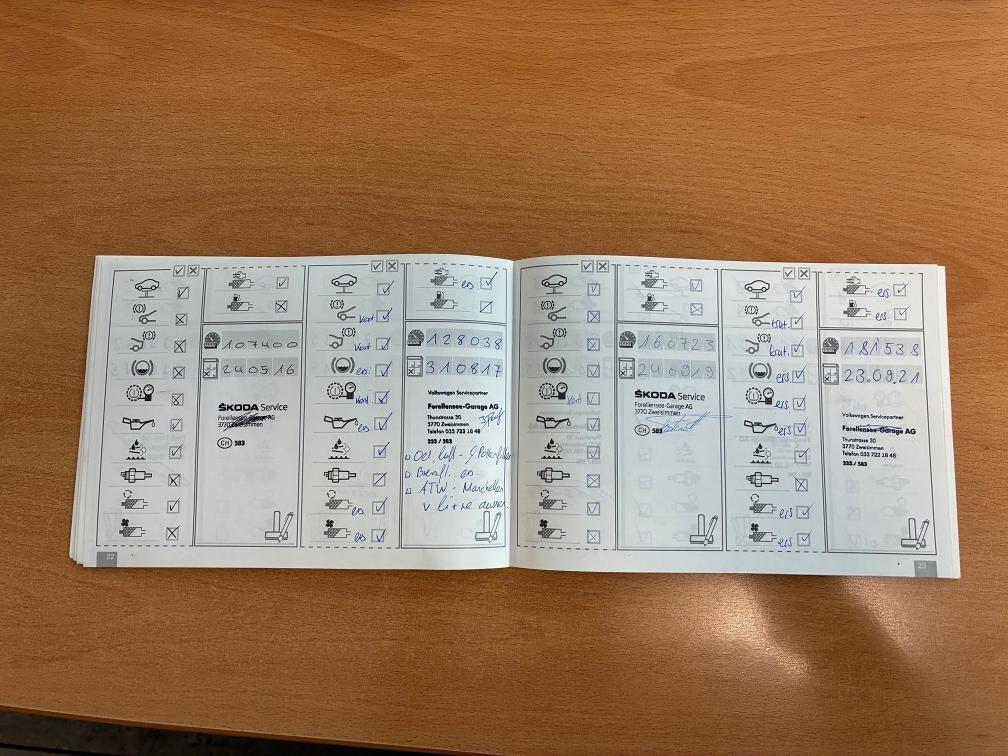 ers
107400
240516
ŠKODA Service
Forellensee-Garage AG
3770 Zweisimmen
CH 583
22
kont
kont
ers.
kont
ers
ers
ers
128038
310817
Volkswagen Servicepartner
Forellensee-Garage AG
Thunstrasse 30
3770 Zweisimmen
Telefon 033 722 18 48
223 / 583
Oel, Luft-
Bremsfl. ers.
ATW-
v. li
kont
160723
240919
ŠKODA Service
Forellensee-Garage AG
3770 Zweisimmen
CH 583
kont.
kont.
ers
ers
ers
ers
ers
ers
ers.
181538
23.09.21
Volkswagen Servicepartner
Forellensee-Garage AG
Thunstrasse 30
3770 Zweisimmen
Telefon 033 722 18 48
223 / 583
23